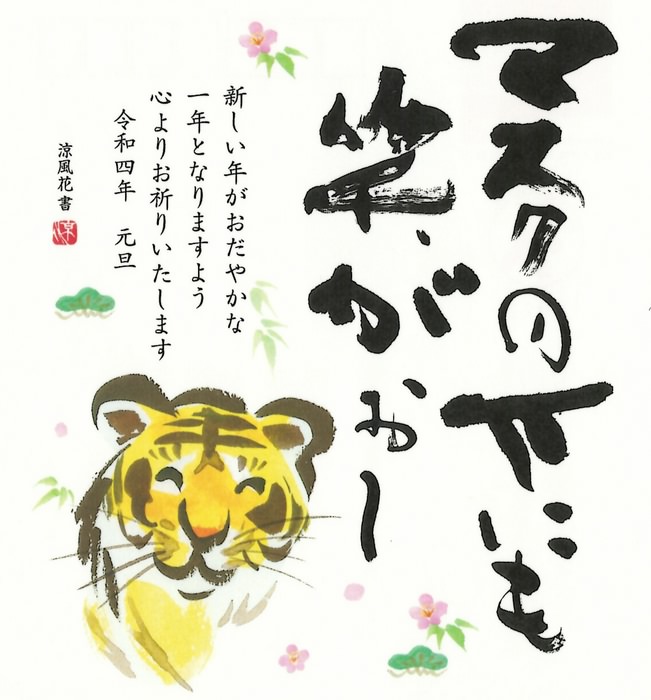 マスクの下にも
笑がおー
新しい年がおだやかな
一年となりますよう
心よりお祈りいたします
令和四年　元旦
涼風花書
涼